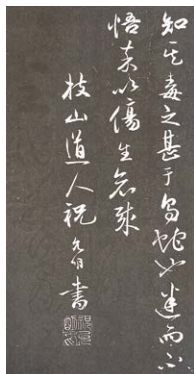 知其毒之甚于烏蛇也迷而不
悟卒以傷生哀哉
枝山道人祝允明書